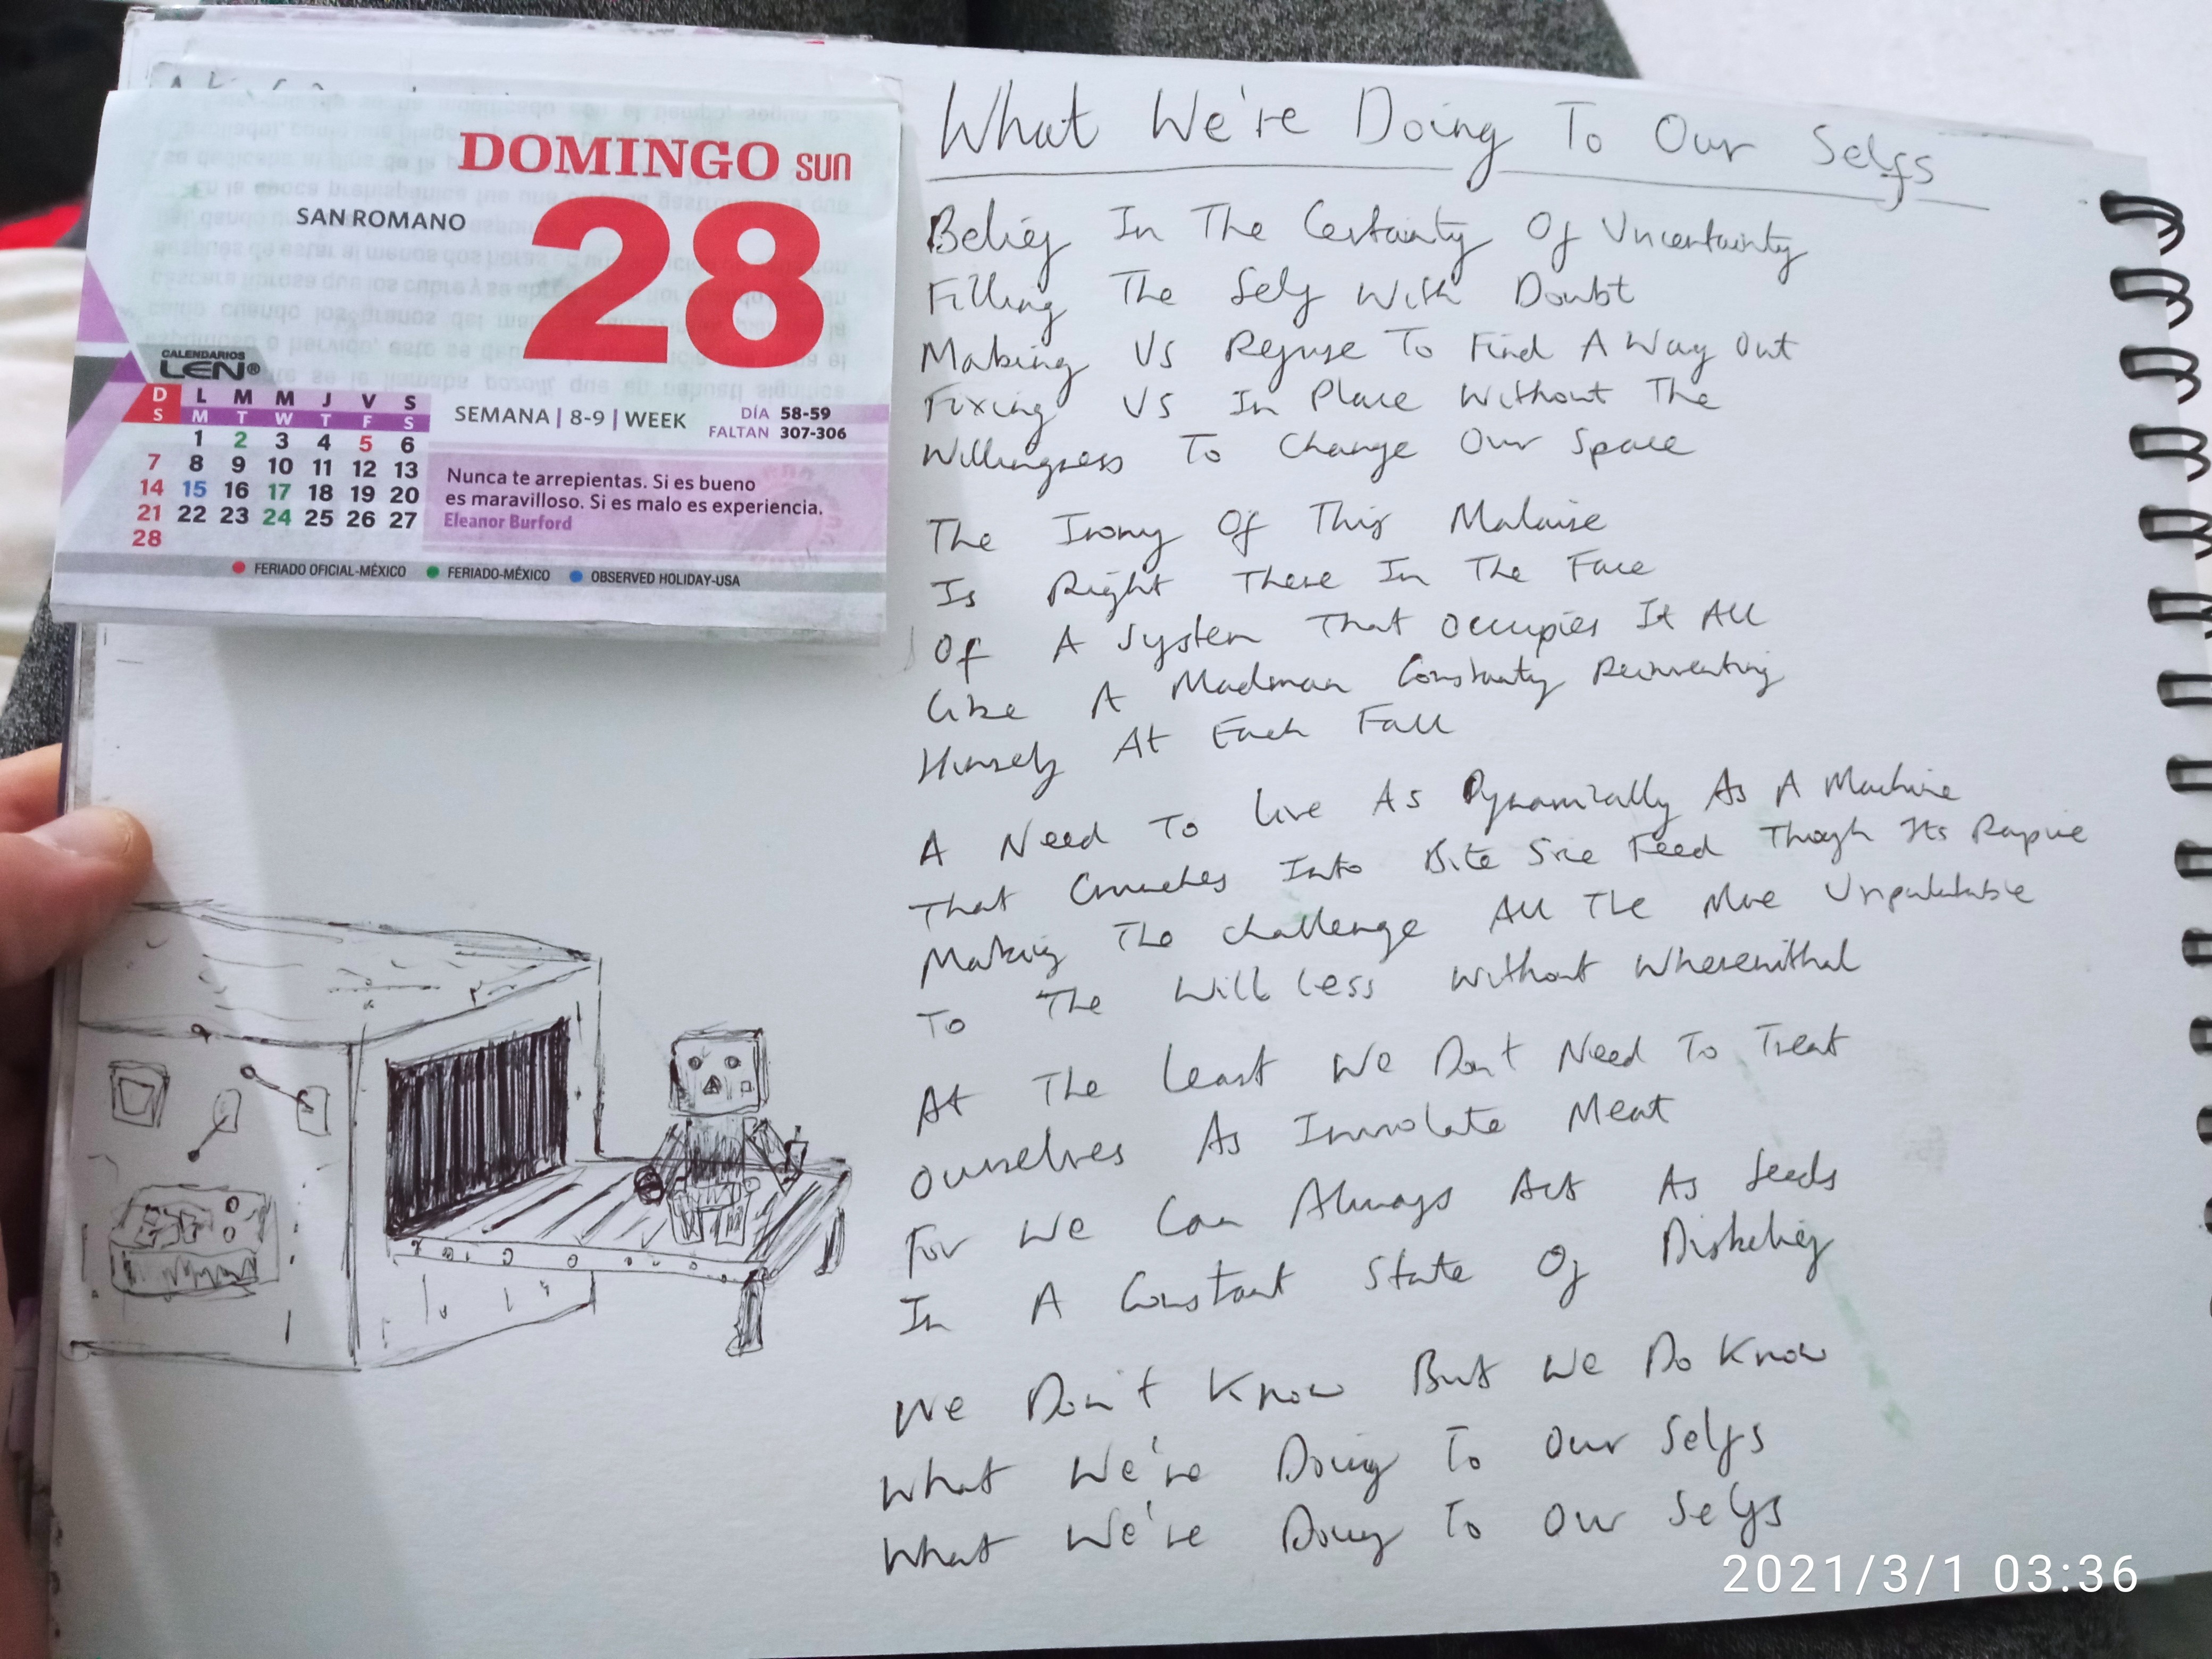 DOMINGO SUN
SAN ROMANO
28
CALENDARIOS
LEN®
D L M M J V S
S M T W T F S
1 2 3 4 5 6
7 8 9 10 11 12 13
14 15 16 17 18 19 20
21 22 23 24 25 26 27
28
SEMANA | 8-9 | WEEK
DÍA 58-59
FALTAN 307-306
Nunca te arrepientas. Si es bueno
es maravilloso. Si es malo es experiencia.
Eleanor Burford
FERIADO OFICIAL-MÉXICO FERIADO-MÉXICO OBSERVED HOLIDAY-USA
What We're Doing To Our Selfs
Belief In The Certainty Of Uncertainty
Filling The Self With Doubt
Making Us Refuse To Find A Way Out
Fixing Us In Place Without The
Willingness To Change Our Space
The Irony Of This Malaise
Is Right There In The Face
Of A System That Occupies It All
Like A Madman Constantly Reinventing
Himself At Each Fall
A Need To Live As Dynamically As A Machine
That Crunches Into Bite Size Feed Though Its
Making The Challenge All The More Unpalatable
To The Will Less Without Wherewithal
At The Least We Don't Need To Treat
Ourselves As Immolate Meat
For We Can Always Act As Seeds
In A Constant State Of Disbelief
We Don't Know But We Do Know
What We're Doing To Our Selfs
What We're Doing To Our Selfs
2021/3/1 03:36